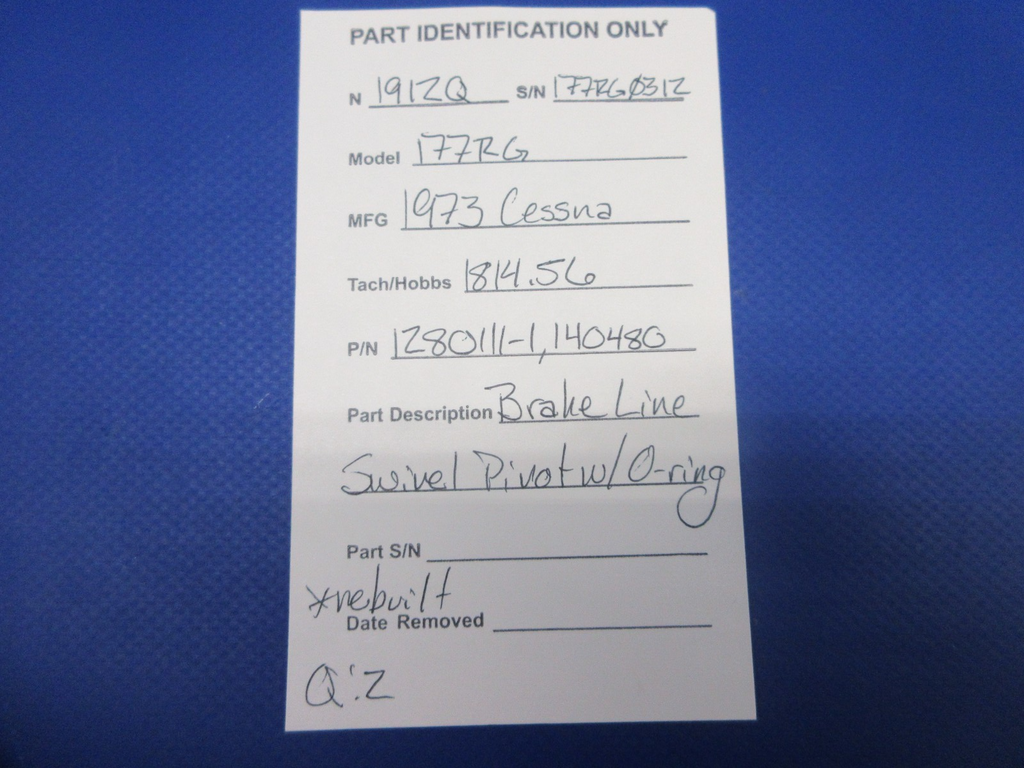 PART IDENTIFICATION ONLY
N 1912Q S/N 177RG0312
Model 177RG
MFG 1973 Cessna
Tach/Hobbs 1814.56
P/N 1280111-1, 140480
Part Description Brake Line
Swivel Pivot w/ O-ring
Part S/N
*rebuilt
Date Removed
Q:2